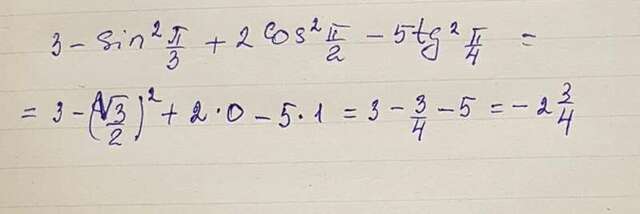 3 - sin² π/3 + 2 cos² π/2 - 5tg² π/4 =
= 3 - (√3/2)² + 2·0 - 5·1 = 3 - 3/4 - 5 = -2 3/4